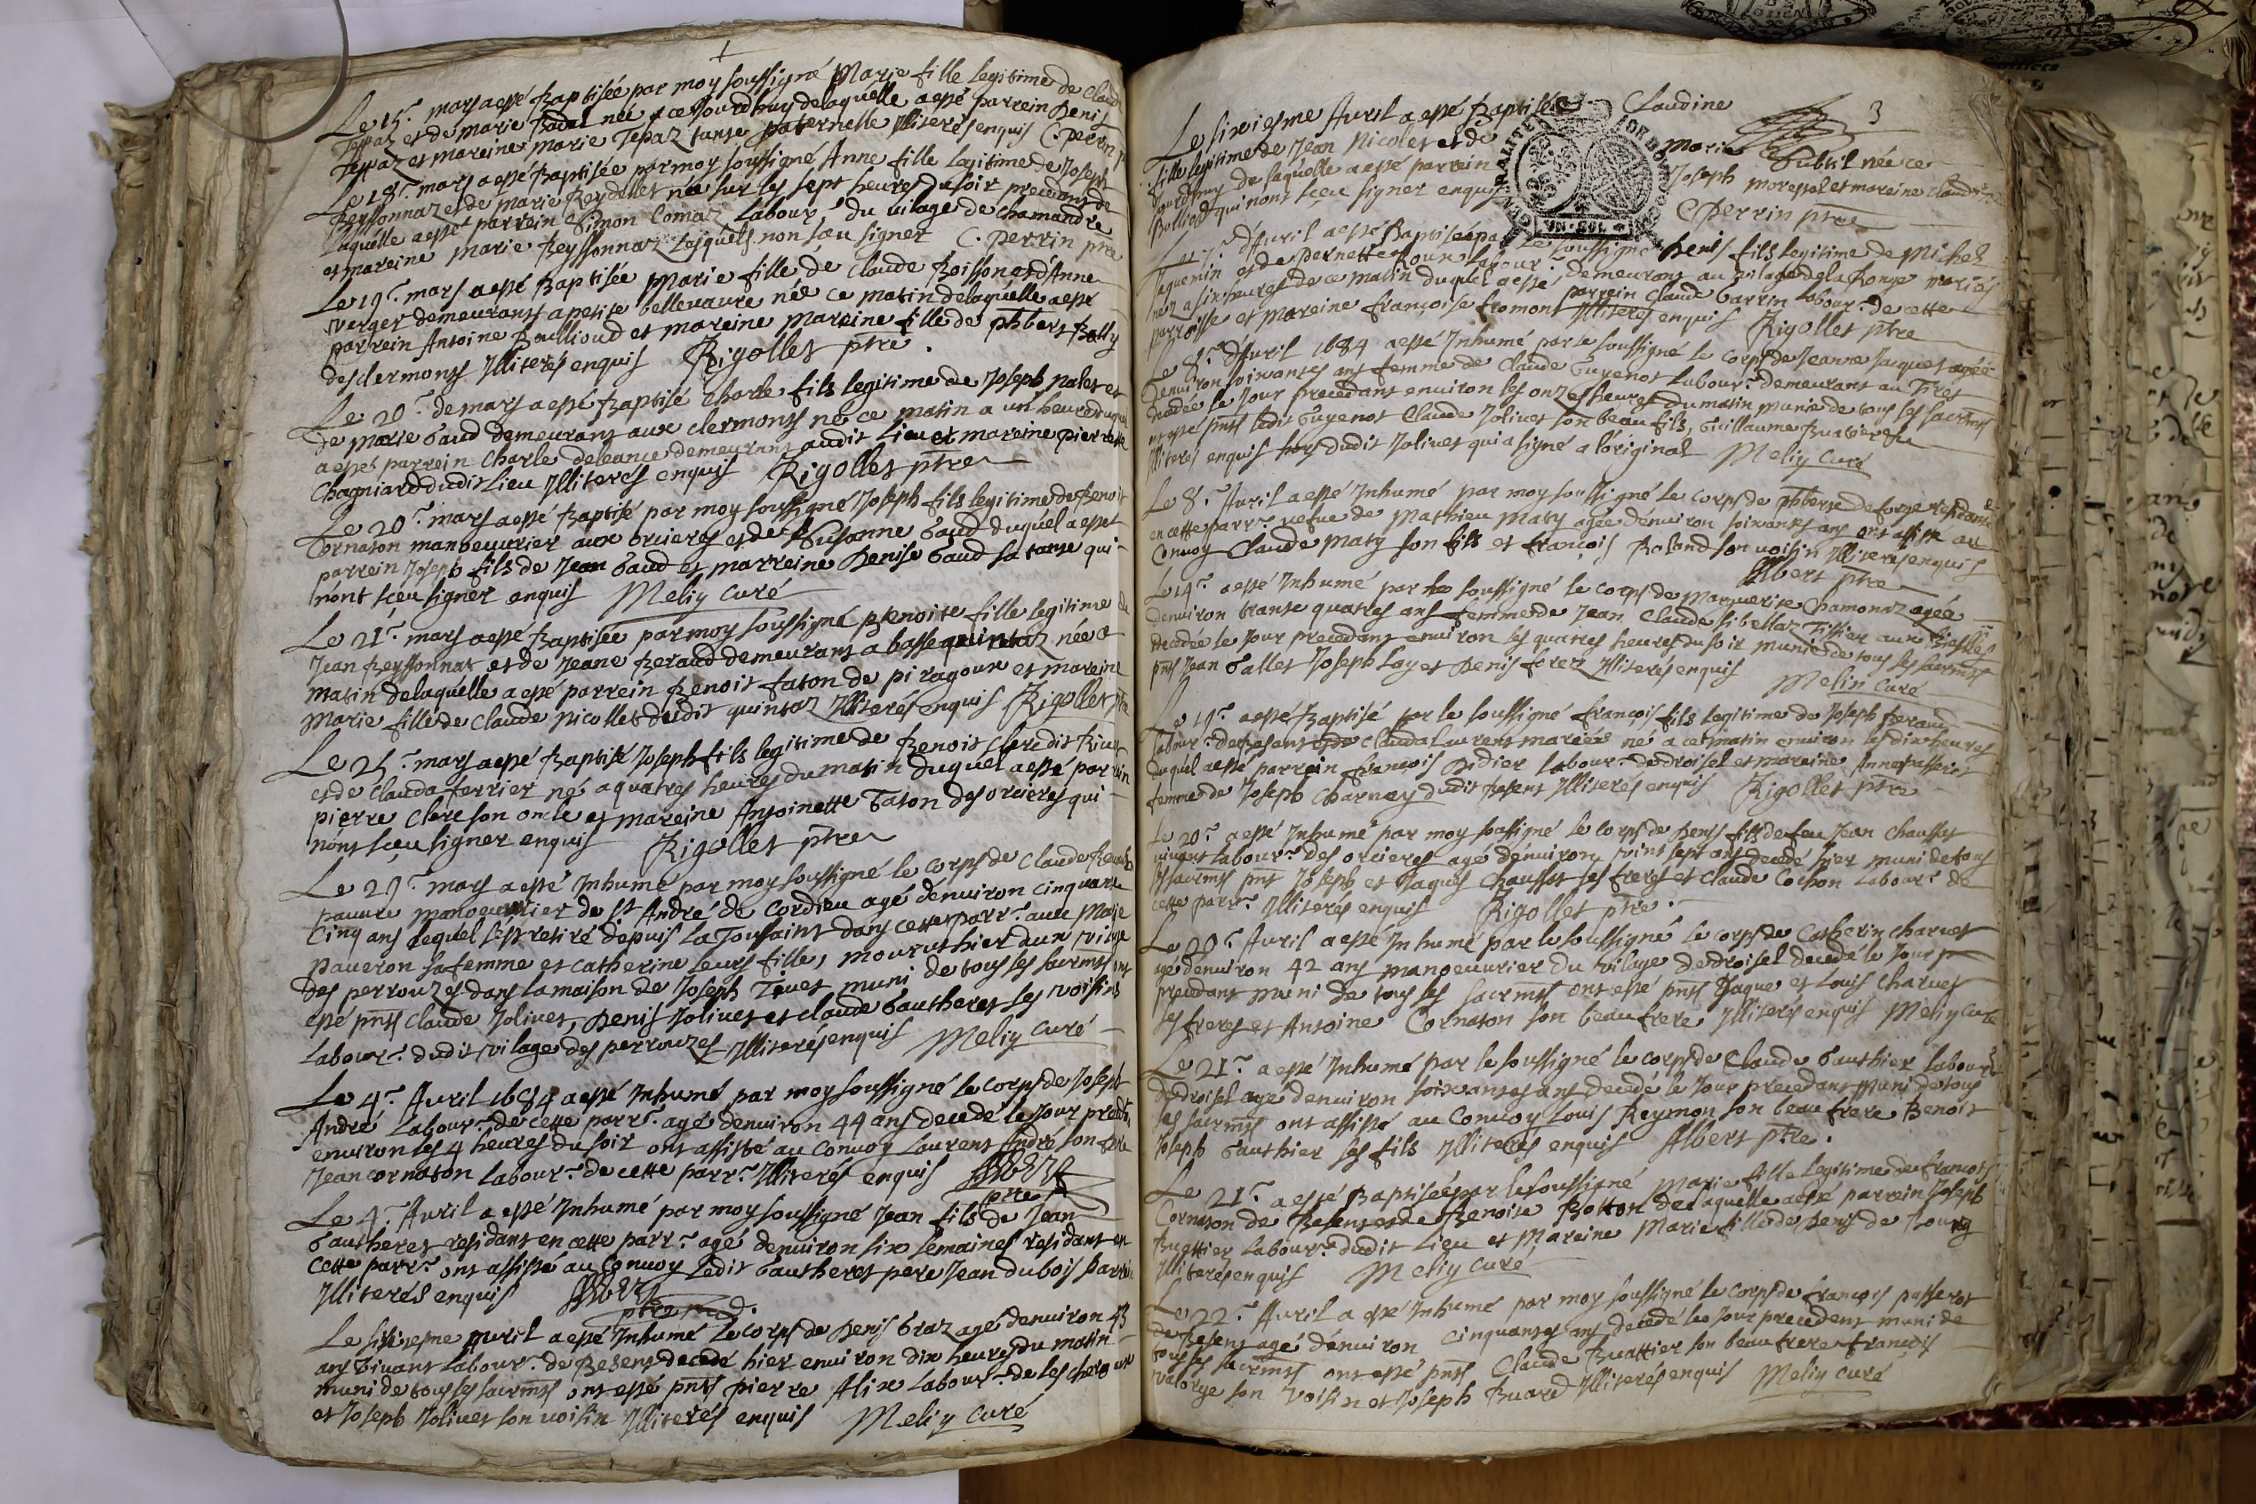 Le 15.e mars a esté Baptisée par moy soussigné Marie fille legitime de Claude
Teppaz et de marie Bodal née ce jourdhuy de laquelle a esté parrein Denis
Teppaz et mareine marie Tepaz tante paternelle Illiterés enquis C. Perrin
Le 18.e mars a esté Baptisée par moy soussigné Anne fille legitime de Joseph
Reyssonnaz et de marie Reydellet née sur les sept heures du soir precedent de
laquelle a esté parrein Simon Comaz Labour.r du vilage de chamandre
et mareine marie Reyssonnaz Lesquels non sceu signer C. perrin ptre
Le 19.e mars a esté Baptisée Marie fille de Claude Boisson et d'Anne
verger demeurants a petite bellevavre née ce matin de laquelle a esté
parrein Antoine Boullioud et mareine mareine fille de phbert Bally
des clermonts Illiterés enquis Rigollet ptre.
Le 20.e de mars a esté Baptisé charle fils legitime de Joseph nalet et
de marie Gaud demeurants aux clermonts né ce matin a un heure duquel
a esté parrein charle deleance demeurant audit Lieu et mareine pierrette
Chagniard dudit Lieu Illiterés enquis Rigollet ptre
Le 20.e mars a esté Baptisé par moy soussigné Joseph fils legitime de Benoit
Cornaton manoeuvrier aux orcieres et de Susanne Gaud duquel a esté
parrein Joseph fils de Jean Gaud et marreine Denise Gaud sa tante qui
n'ont sceu signer enquis Meliy curé
Le 21.e mars a esté Baptisée par moy soussigné Benoite fille legitime de
Jean Reyssonnat et de Jeane Feraud demeurants a basse quintaz née ce
matin de laquelle a esté parrein Benoit faton de piragoux et mareine
marie fille de Claude Nicollet dudit quintaz Illiterés enquis Rigollet ptre
Le 25.e mars a esté Baptisé Joseph fils legitime de Benoit Clere dit
et de Clauda ferrier né a quatres heures du matin duquel a esté parrein
pierre Clere son oncle et mareine Antoinette faton des orcieres qui
n'ont sceu signer enquis Rigollet ptre
Le 29.e mars a esté Inhumé par moy soussigné le corps de Claude
pauvre manoeuvrier de st André de Cordieu agé denuiron cinquante
cinq ans lequel s'est retiré depuis La Toussaint dans cette parr.e avec Marie
paveron sa femme et catherine leurs fille, mourut hier aux vilage
des perrouzes dans la maison de Joseph Tivet muni de tous les sacrmts ont
esté pnts Claude Jolivet, Denis Jolivet et claude Gautheret ses voisins
Labour.rs dudit vilage des perrouzes Illiterés enquis Meliy curé
Le 4.e Avril 1684 a esté Inhumé par moy soussigné le corps de Joseph
André Labour.r de cette parr.e agé denuiron 44 ans decedé le jour precedt
environ les 4 heures du soir ont assisté au convoy Laurent André son frere
Jean cornaton Labour.r de cette parr.e Illiterés enquis Albert
ptre
Le 4.e Avril a esté Inhumé par moy soussigné Jean fils de Jean
Gautheret residant en cette parr.e agé denuiron six semaines residant en
cette parr.e ont assisté au convoy Ledit Gautheret pere Jean dubois parrein
Illiterés enquis Albert
ptre
Le sixiesme Avril a esté Inhumé Le corps de Denis Graz agé denuiron 43
ans vivant Labour.r de Besens decedé hier enuiron dix heures du matin
muni de tous ses sacrmts ont esté pnts pierre Alix Labour.r de les cheroux
et Joseph Jolivet son voisin Illiterés enquis Meliy curé
3
Le sixiesme Avril a esté Baptisée Claudine
fille legitime de Jean Nicolet et de marie Subtil née ce
jourdhuy de laquelle a esté parrein Joseph morestel et mareine claudine
Bolliod qui n'ont sceu signer enquis C. Perrin ptre
GENERALITE
UN SOL
d'Avril a esté Baptisé par le soussigné Denis fils legitime de Michel
Jaquemin et de Pernette Roux Labour.r demeurant au vilage de la Ronge mariés
nez a six heures de ce matin duquel a esté parrein claude Garrin Labour.r de cette
parroisse et mareine françoise fromont Illiterés enquis Rigollet ptre
Le 8.e d'Avril 1684 a esté Inhumé par le soussigné le corps de Jeanne Jaquet agée
denuiron soixantes ans femme de Claude Guyenot Labour.r demeurant au
decedée le jour precedant enuiron les onzes heures du matin munie de tous les sacrmts
ont esté pnts ledit Guyenot Claude Jolivet son beau fils, Guillaume
Illiterés enquis hors dudit Jolivet qui a signé a l'original Meliy curé
Le 8.e Avril a esté Inhumé par moy soussigné le corps de phberte deforge residante
en cette parr.e vefve de Mathieu Maty agée denuiron soixantes ans ont assisté au
convoy Claude Maty son fils et François Roland son voisin Illiterés enquis
Albert ptre
Le 14.e a esté Inhumé par le soussigné le corps de Marguerite Chamonaz agée
denuiron trante quatres ans femme de Jean Claude Sibellaz Tissier aux
decedée le jour precedant enuiron les quatres heures du soir munie de tous les sacrmts
pnts Jean Gallet Joseph Loy et Denis ferez Illiterés enquis
Melin curé
Le 19.e a esté Baptisé par le soussigné françois fils legitime de Joseph Feraud
Labour.r de Besens et de Clauda Laurent mariés né a ce matin environ les dix heures
duquel a esté parrein françois Didier Labour.r de droisel et mareine Anne
femme de Joseph Charnay dudit Besens Illiterés enquis Rigollet ptre
Le 20.e a esté Inhumé par moy soussigné le corps de Denis fils de feu Jean Chausset
vivant Labour.r des orcieres agé denuiron vint sept ans decedé hier muni de tous
ses sacrmts pnts Joseph et Jaques Chausset ses freres et Claude Cochon Labour.r de
cette parr.e Illiterés enquis Rigollet ptre.
Le 20.e Avril a esté Inhumé par le soussigné le corps de Catherin charvet
agé denuiron 42 ans manoeuvrier du vilage de droisel decedé le jour
precedant muni de tous ses sacrmts ont esté pnts Jaque et Louis Charvet
ses freres et Antoine Cornaton son beaufrere Illiterés enquis Meliy curé
Le 21.e a esté Inhumé par le soussigné le corps de Claude Gauthier Labour.r
de droisel agé denuiron soixantes ans decedé le jour precedant muni de tous
ses sacrmts ont assisté au Convoy Louis Reymon son beau frere Benoit
Joseph Gauthier ses fils Illiterés enquis Albert ptre.
Le 21.e a esté Baptisée par le soussigné Marie fille legitime de François
Cornaton de Besens et de Benoite Botton de laquelle a esté parrein Joseph
Buattier Labour.r dudit Lieu et Mareine Marie fille de Denis de Bourg
Illiterés enquis Meliy curé
Le 22.e Avril a esté Inhumé par moy soussigné le corps de françois passerot
de Besens agé denuiron cinquantes ans decedé les jour precedent muni de
tous ses sacrmts ont esté pnts Claude Buattier son beaufrere françois
valorge son voisin et Joseph Buard Illiterés enquis Meliy curé